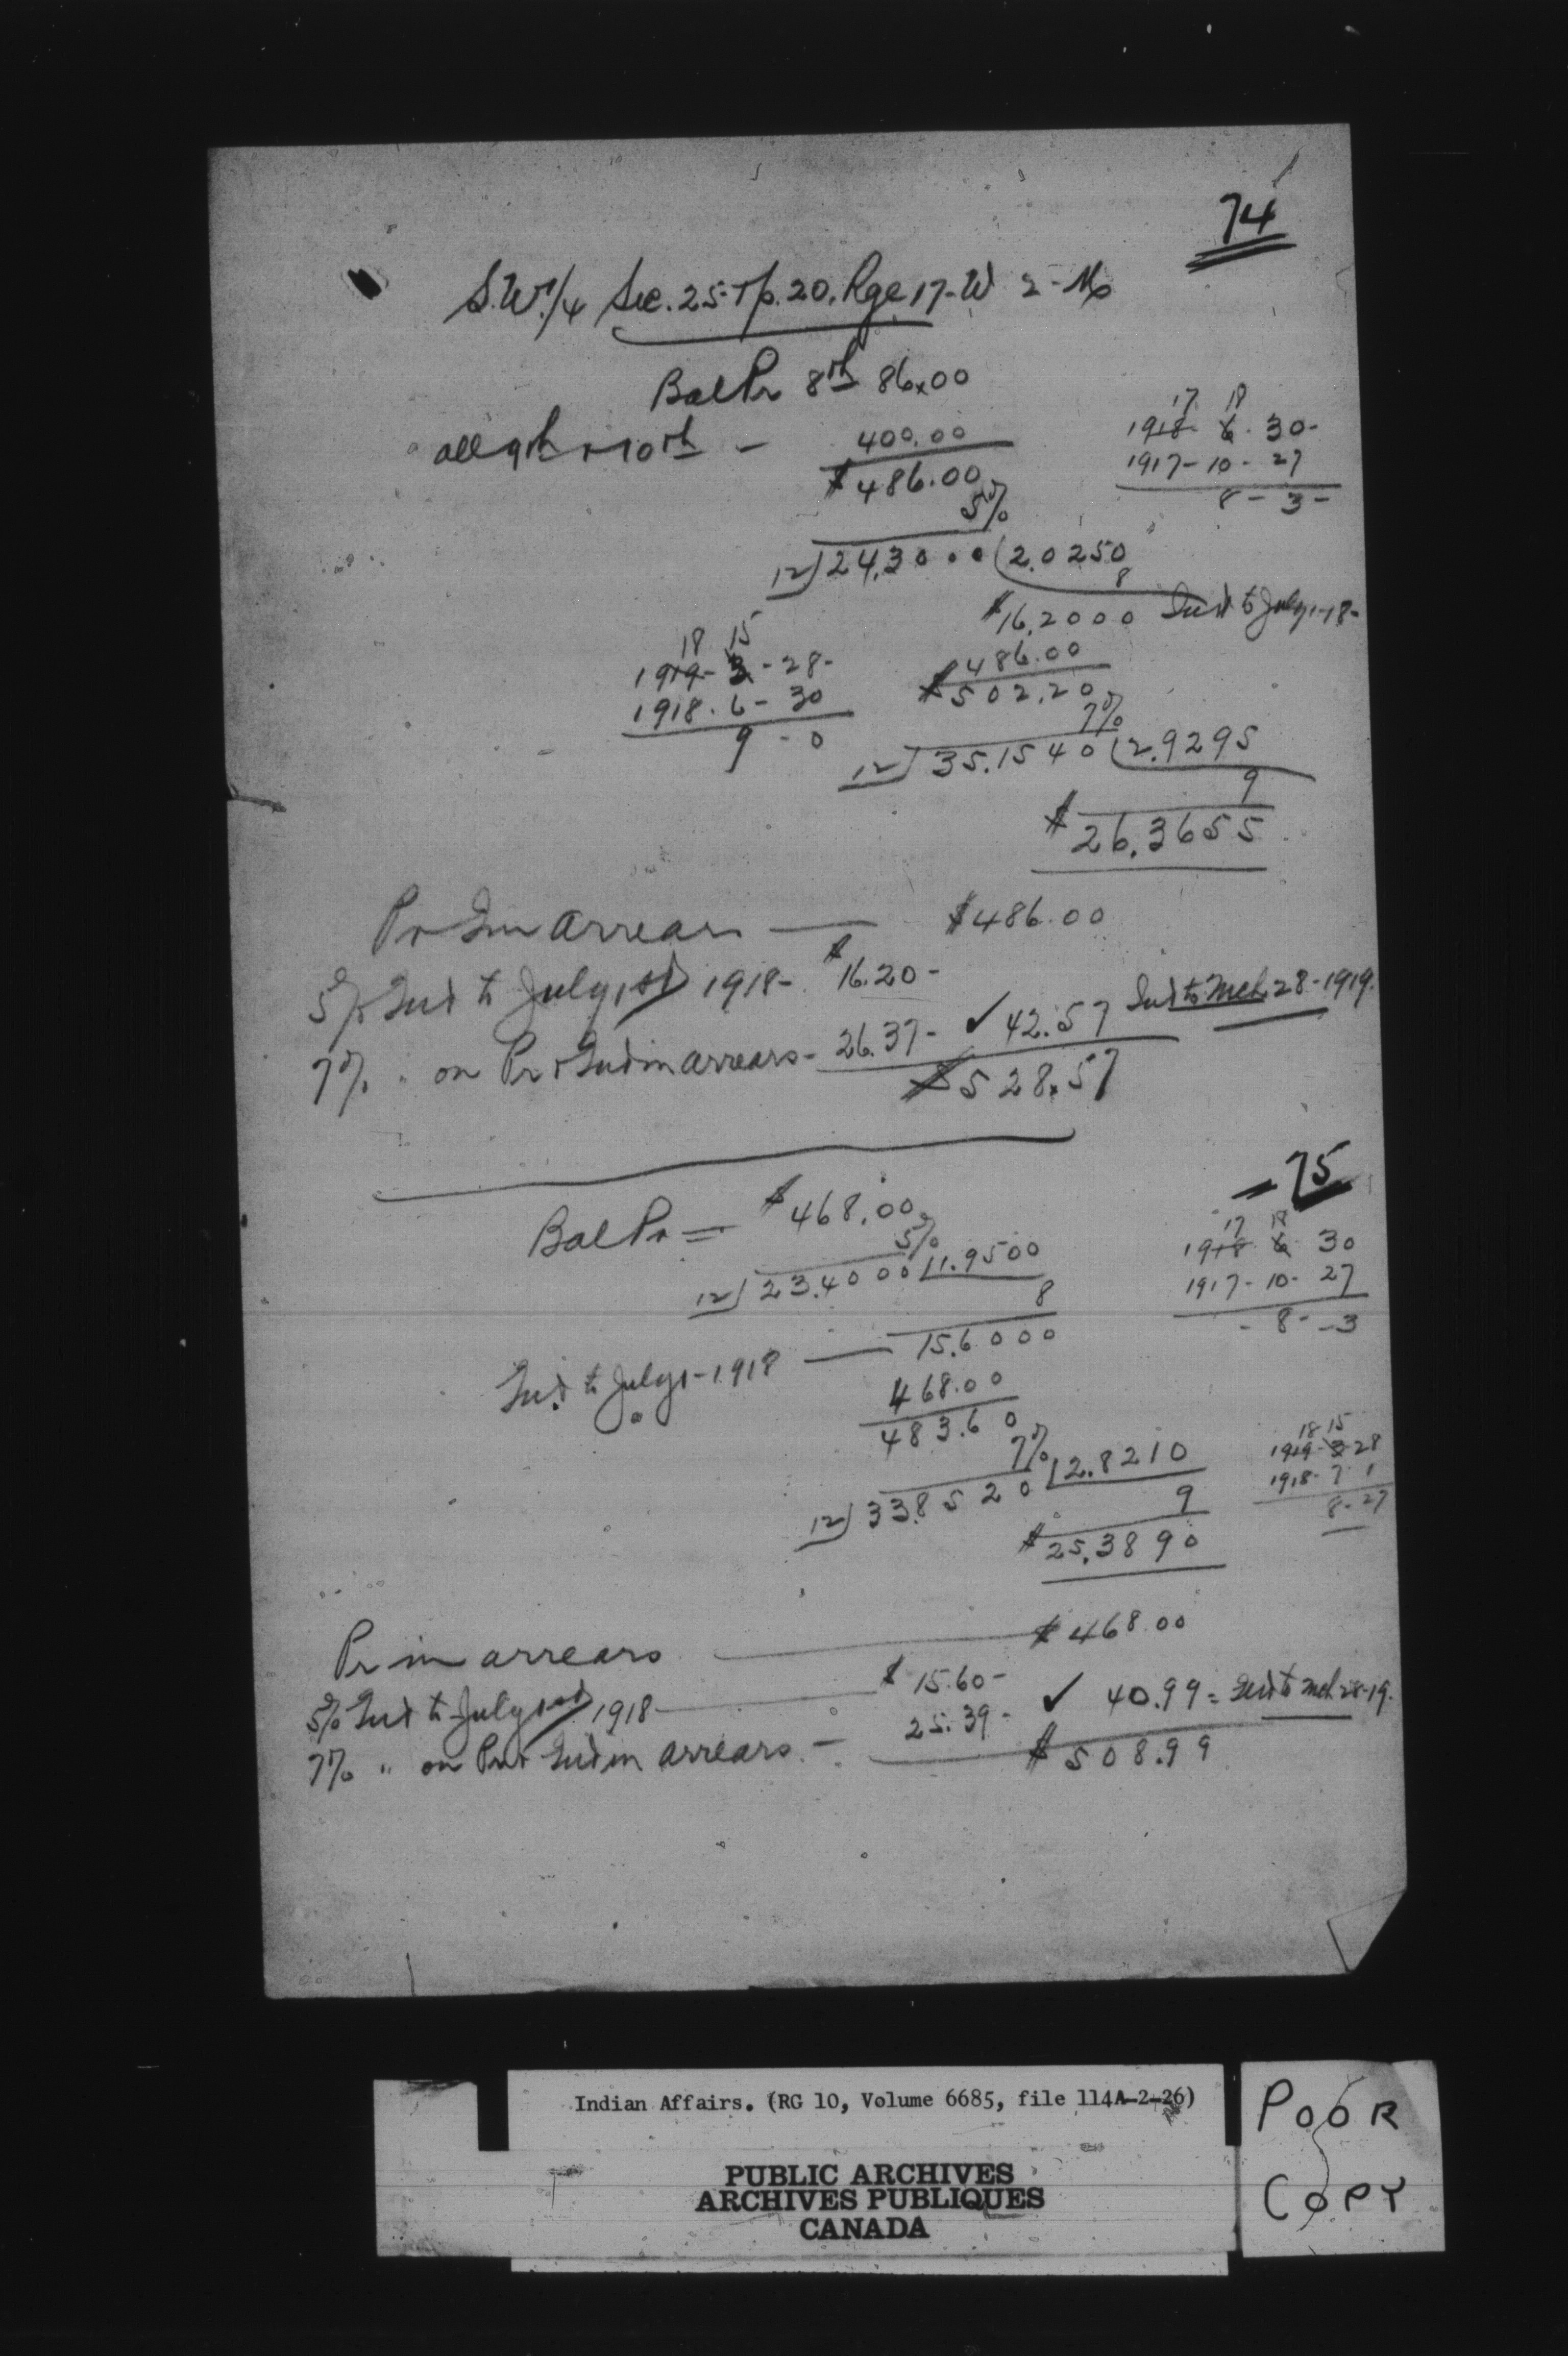 74
S.W. 1/4 Sec. 25-Tp. 20, Rge 17-W 2-M
Bal Pr 8th 86.00
all 9th + 10th - 400.00
$486.00
5%
12) 24.3000 (2.0250
8
$16.2000 Int to July 1-18-
486.00
$502.20
7%
12) 35.1540 (2.9295
9
$26.3655
17 18
1918- 6-30-
1917-10-27
8-3-
18 15
1919-3-28-
1918.6-30
9-0
Pr Int arrears — $486.00
5% Int to July 1st 1918- $16.20-
7% " on Pr + Int in arrears- 26.37- ✓ 42.57 Int to Mch 28-1919.
$528.57
75
Bal Pr = $468.00
5%
12) 23.4000 (1.9500
8
Int to July 1-1918 — 15.6000
468.00
483.60
7%
12) 33.8520 (2.8210
9
$25.3890
17 18
1918 6 30
1917-10-27
- 8 - - 3
18 15
1919-3-28
1918-7 1
8-27
Pr in arrears — $468.00
5% Int to July 1st 1918- $15.60-
7% " on Pr + Int in arrears. - 25.39- ✓ 40.99 = Int to Mch 28-19.
$508.99
Indian Affairs. (RG 10, Volume 6685, file 114A-2-26)
PUBLIC ARCHIVES
ARCHIVES PUBLIQUES
CANADA
POOR
COPY